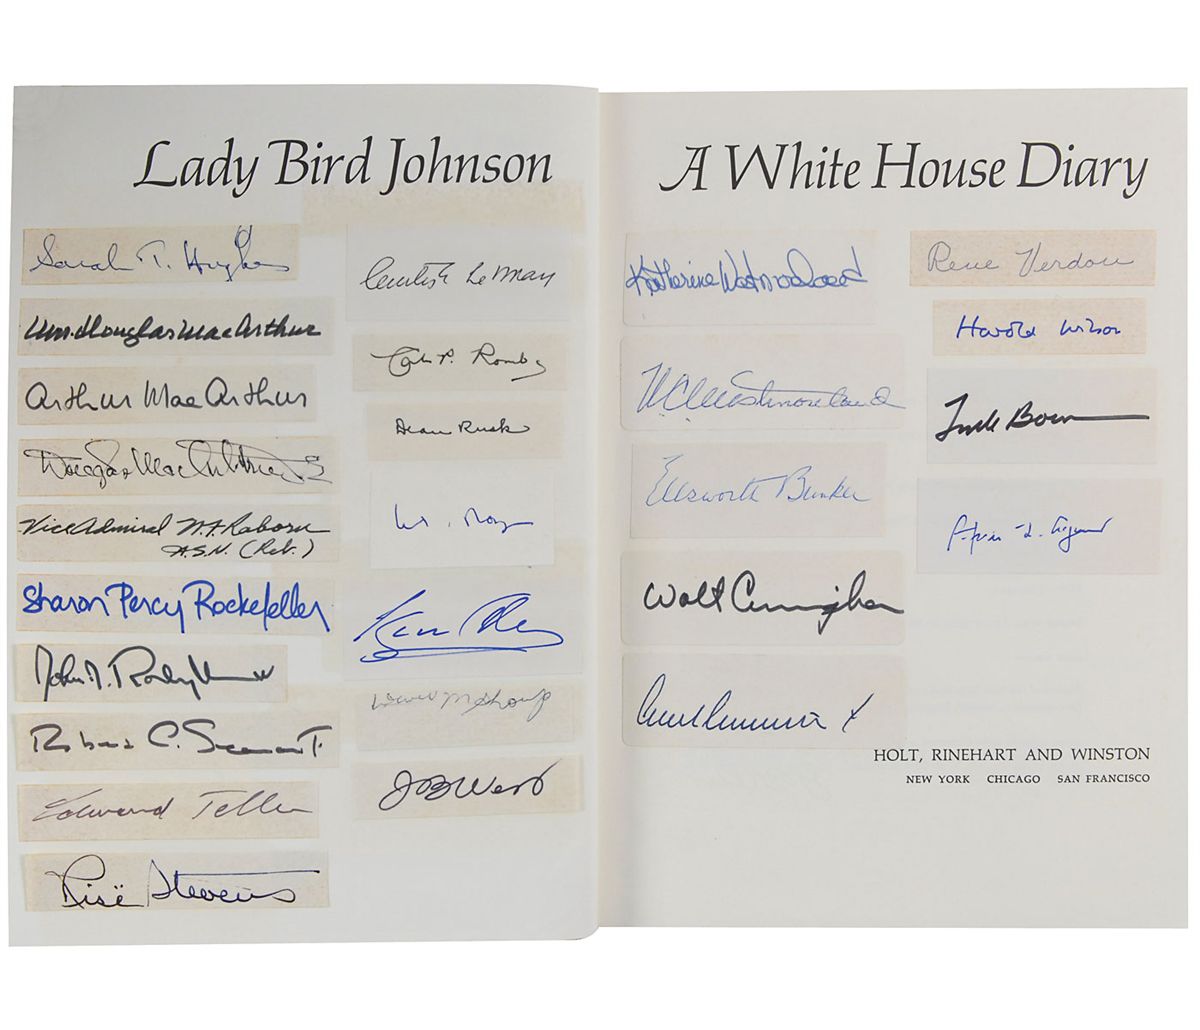 Lady Bird Johnson
Sarah T. Hughes
Wm. Douglas MacArthur
Arthur MacArthur
Douglas MacArthur II
Vice Admiral W.F. Raborn
U.S.N. (Ret.)
Sharon Percy Rockefeller
John D. Rockefeller IV
Robert C. Seamans Jr.
Edward Teller
Risë Stevens
Curtis E LeMay
Carlos P. Romulo
Dean Rusk
David M Shoup
J B West
A White House Diary
Katherine Westmoreland
W C Westmoreland
Ellsworth Bunker
Walt Cunningham
René Verdon
Harold Wilson
Frank Borman
HOLT, RINEHART AND WINSTON
NEW YORK CHICAGO SAN FRANCISCO